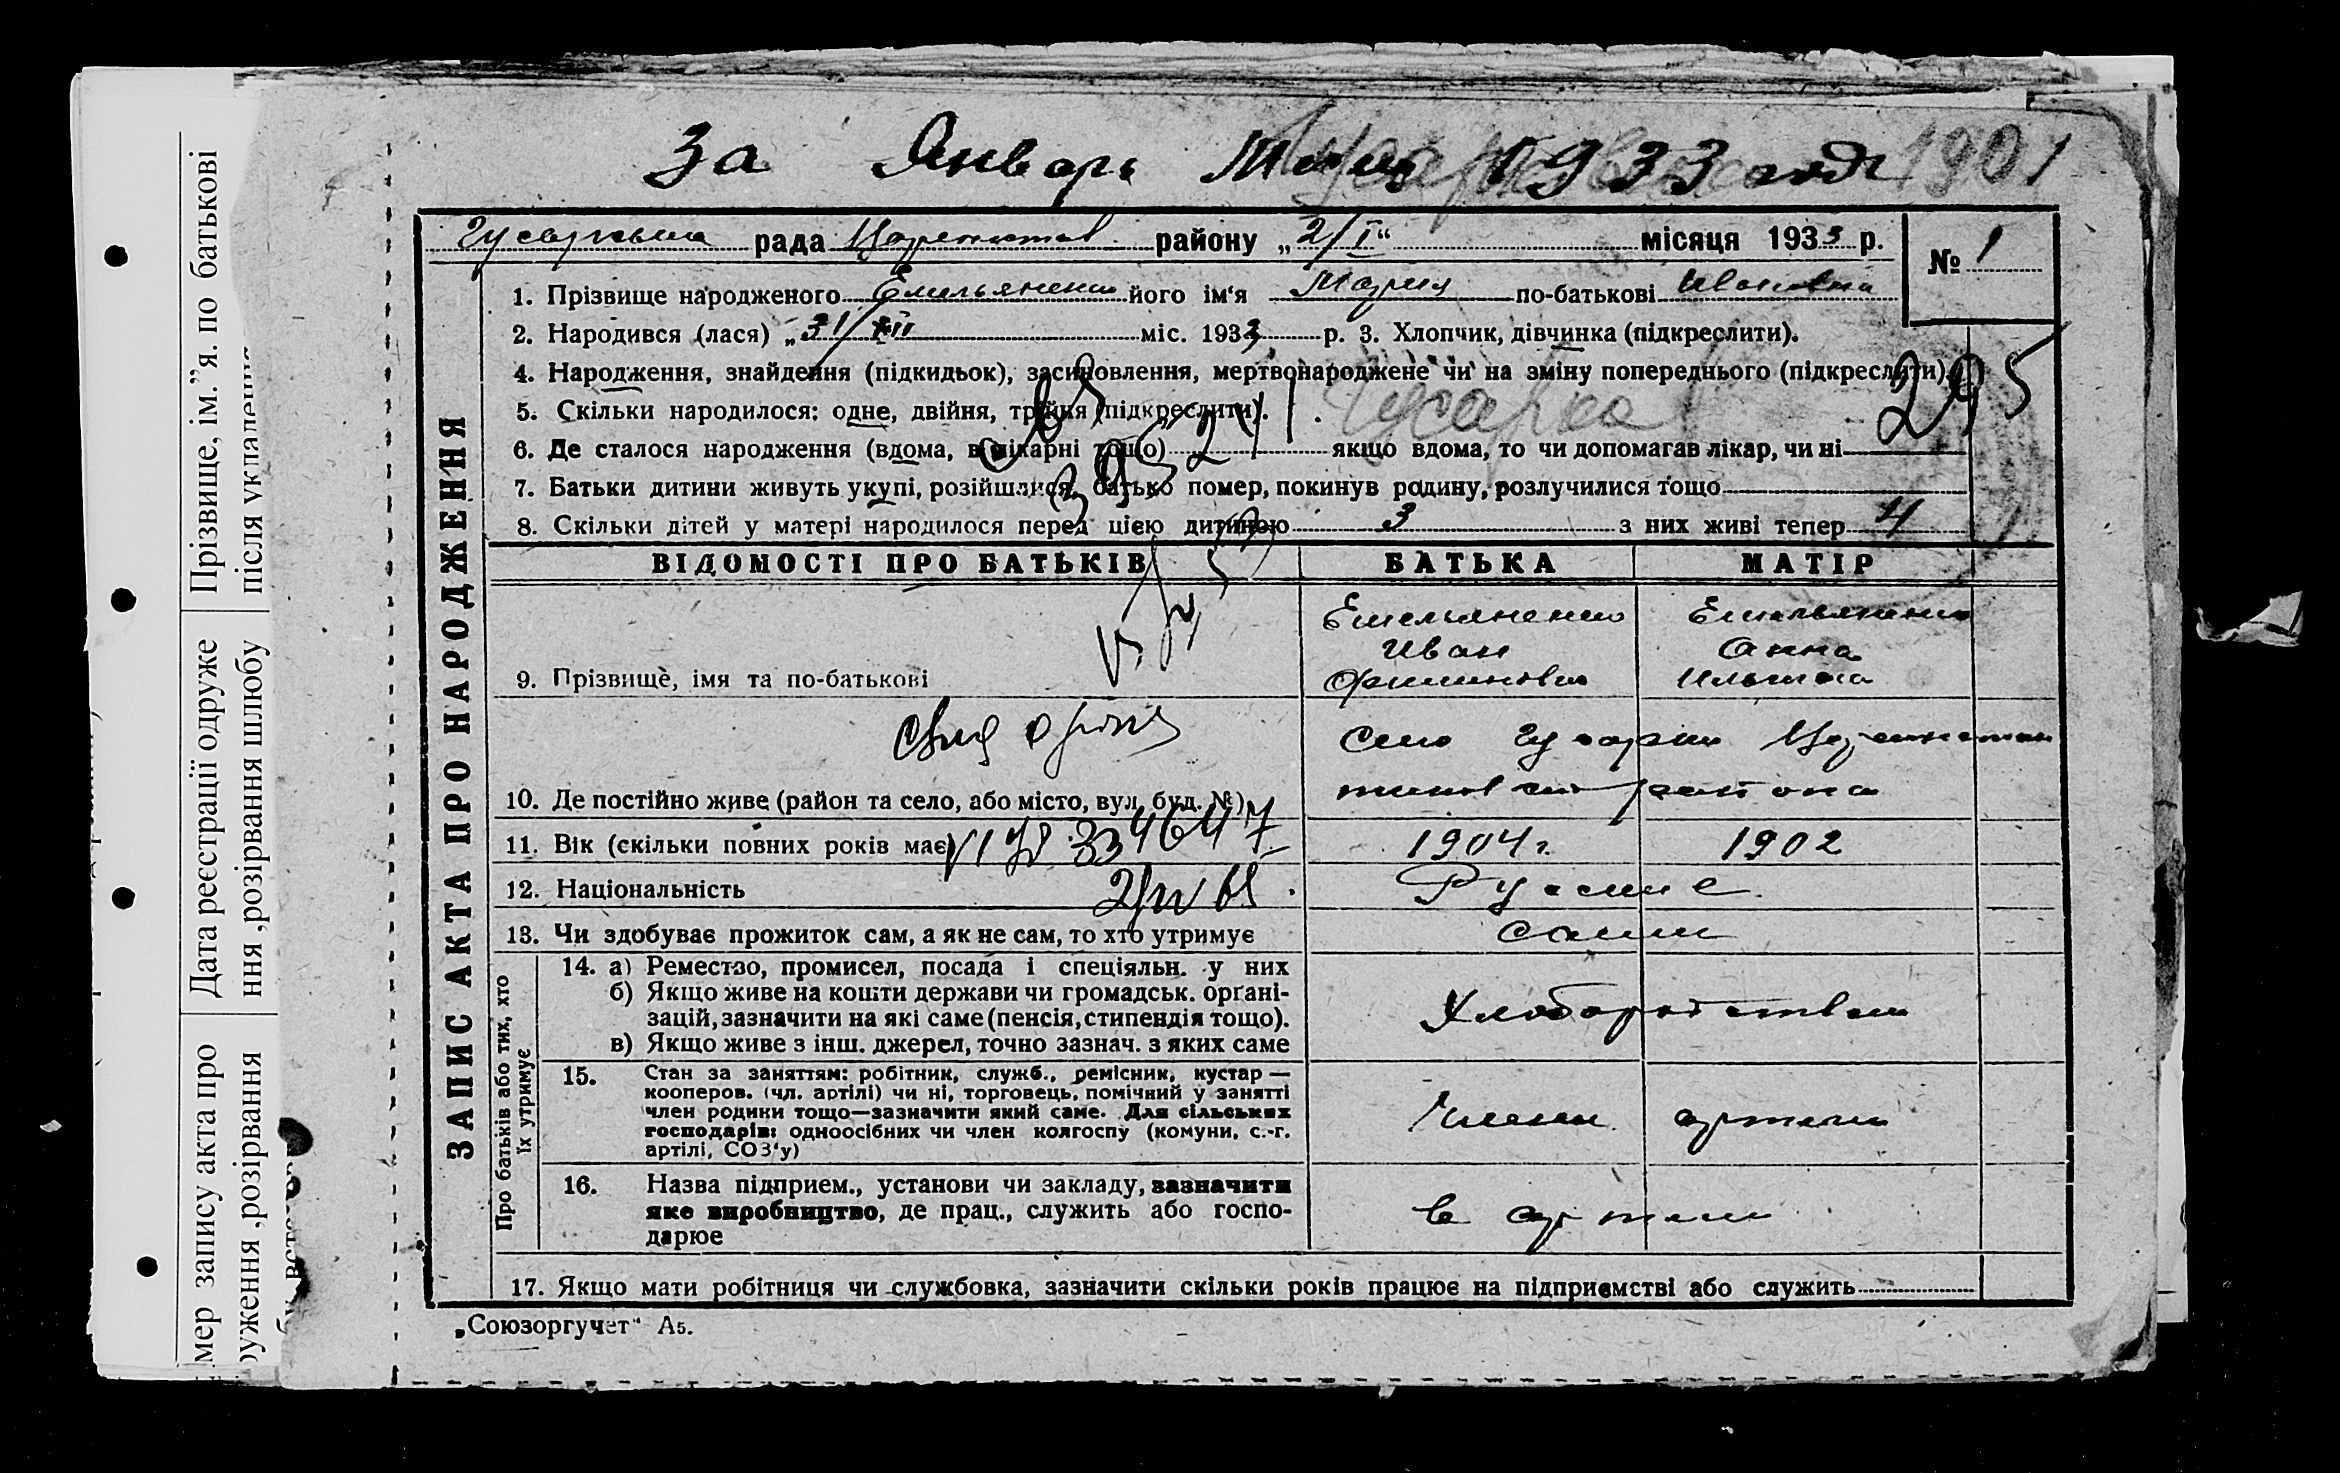 За Январь 1933 года
1901
Гусарская рада района „2/I“ місяця 1933 р.
№ 1
1. Прізвище народженого Емельяненко його ім‘я Мария по-батькові Ивановна
2. Народився (лася) „31/XII міс. 1933 р. 3. Хлопчик, дівчинка (підкреслити).
4. Народження, знайдення (підкидьок), засиновлення, мертвонароджене чи на зміну попереднього (підкреслити).
295
5. Скільки народилося: одне, двійня, трійня (підкреслити).
Гусарка
6. Де сталося народження (вдома, в лікарні тощо) якщо вдома, то чи допомагав лікар, чи ні
7. Батьки дитини живуть укупі, розійшлися, батько помер, покинув родину, розлучилися тощо
8. Скільки дітей у матері народилося перед цією дитиною 3 з них живі тепер 4
ЗАПИС АКТА ПРО НАРОДЖЕННЯ
ВІДОМОСТІ ПРО БАТЬКІВ БАТЬКА МАТІР
Емельяненко Емельяненко
Иван Анна
9. Прізвище, імя та по-батькові
Село Гусарка
10. Де постійно живе (район та село, або місто, вул. буд. №)
района
11. Вік (скільки повних років має) 1904 г. 1902
12. Національність Русские
13. Чи здобуває прожиток сам, а як не сам, то хто утримує сами
Про батьків або тих, хто
їх утримує
14. а) Ремество, промисел, посада і спеціяльн. у них
б) Якщо живе на кошти держави чи громадськ. органі-
зацій, зазначити на які саме (пенсія, стипендія тощо).
в) Якщо живе з інш. джерел, точно зазнач. з яких саме
Хлеборобством
15. Стан за заняттям: робітник, служб., ремісник, кустар —
кооперов. (чл. артілі) чи ні, торговець, помічний у занятті
член родини тощо—зазначити який саме. Для сільських
господарів: одноосібних чи член колгоспу (комуни, с.-г.
артілі, СОЗ‘у)
Члены артели
16. Назва підприєм., установи чи закладу, зазначити
яке виробництво, де прац., служить або госпо-
дарює
в артели
17. Якщо мати робітниця чи службовка, зазначити скільки років працює на підприємстві або служить
„Союзоргучет“ А5.
Прізвище, ім.”я. по батькові
після укладення
Дата реєстрації одруже
ння ,розірвання шлюбу
мер запису акта про
руження ,розірвання